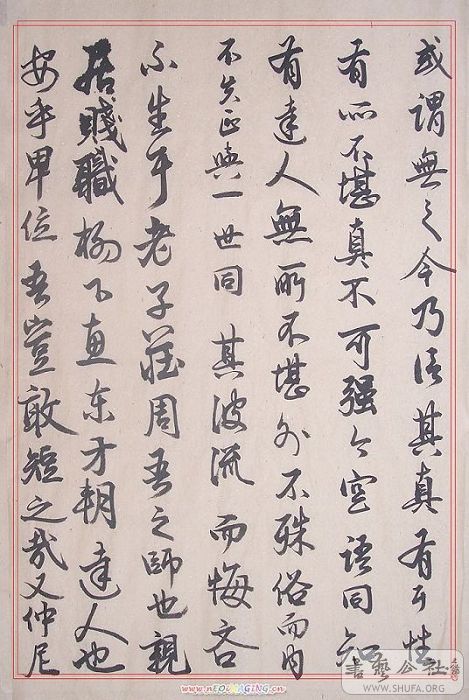 或謂無之今乃信其真有耳性
有所不堪真不可强今空語同知
有達人無所不堪外不殊俗而内
不失正與一世同其波流而悔吝
不生耳老子莊周吾之師也親
居賤職柳下惠东方朝達人也
安乎卑位吾豈敢短之哉又仲尼
www.neoimaging.cn
書藝公社
WWW.SHUFA.ORG